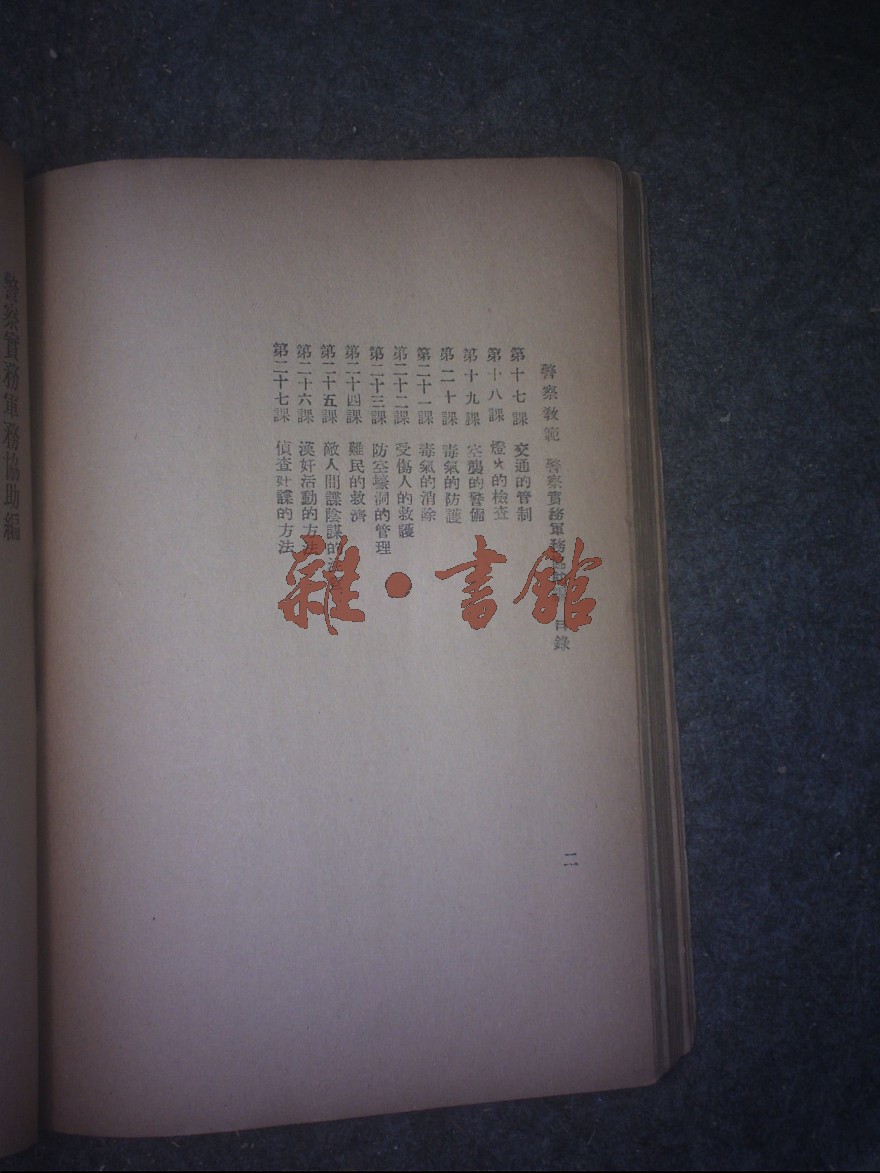 警察教範　警察實務軍務協助編　目錄
第十七課　交通的管制
第十八課　燈火的檢查
第十九課　空襲的警備
第二十課　毒氣的防護
第二十一課　毒氣的消除
第二十二課　受傷人的救護
第二十三課　防空壕洞的管理
第二十四課　難民的救濟
第二十五課　敵人間諜陰謀的
第二十六課　漢奸活動的方法
第二十七課　偵查奸諜的方法
二
警察實務軍務協助編
雜·書館